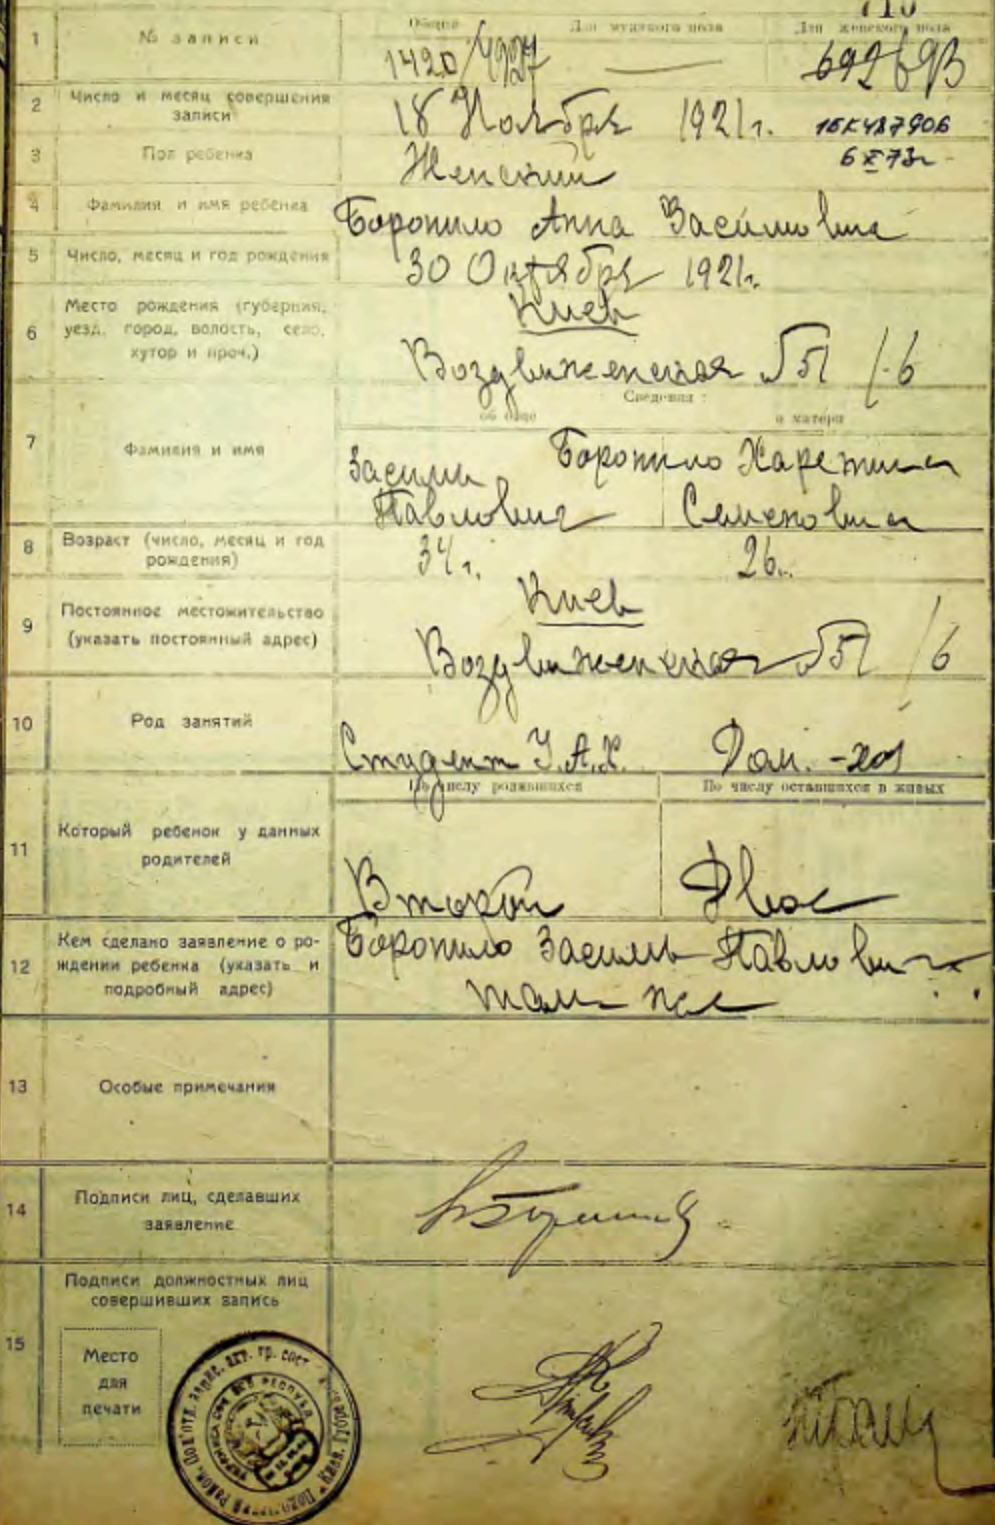 710
1 № записи Общее Для мужского пола Для женского пола
1420/4727 — 692 693
2 Число и месяц совершения записи 18 Ноября 1921 г. 1БК487906
3 Пол ребенка Женский 6 X 73 г
4 Фамилия и имя ребенка Боропило Анна Васильовна
5 Число, месяц и год рождения 30 Октября 1921 г.
6 Место рождения (губерния,
уезд, город, волость, село,
хутор и проч.)
Киев
Воздвиженская № 51 / 6
Сведения:
об отце о матери
7 Фамилия и имя
Боропило
Василь Павлович Харетина Семеновна
8 Возраст (число, месяц и год
рождения)
34 г. 26
9 Постоянное местожительство
(указать постоянный адрес)
Киев
Воздвиженская № 51 / 6
10 Род занятий Студент У.А.Х. Дом.-хоз
По числу родившихся По числу оставшихся в живых
11 Который ребенок у данных
родителей
Второй Двое
12 Кем сделано заявление о ро-
ждении ребенка (указать и
подробный адрес)
Боропило Василь Павлович
там же
13 Особые примечания
14 Подписи лиц, сделавших
заявление
15 Подписи должностных лиц
совершивших запись
Место
для
печати